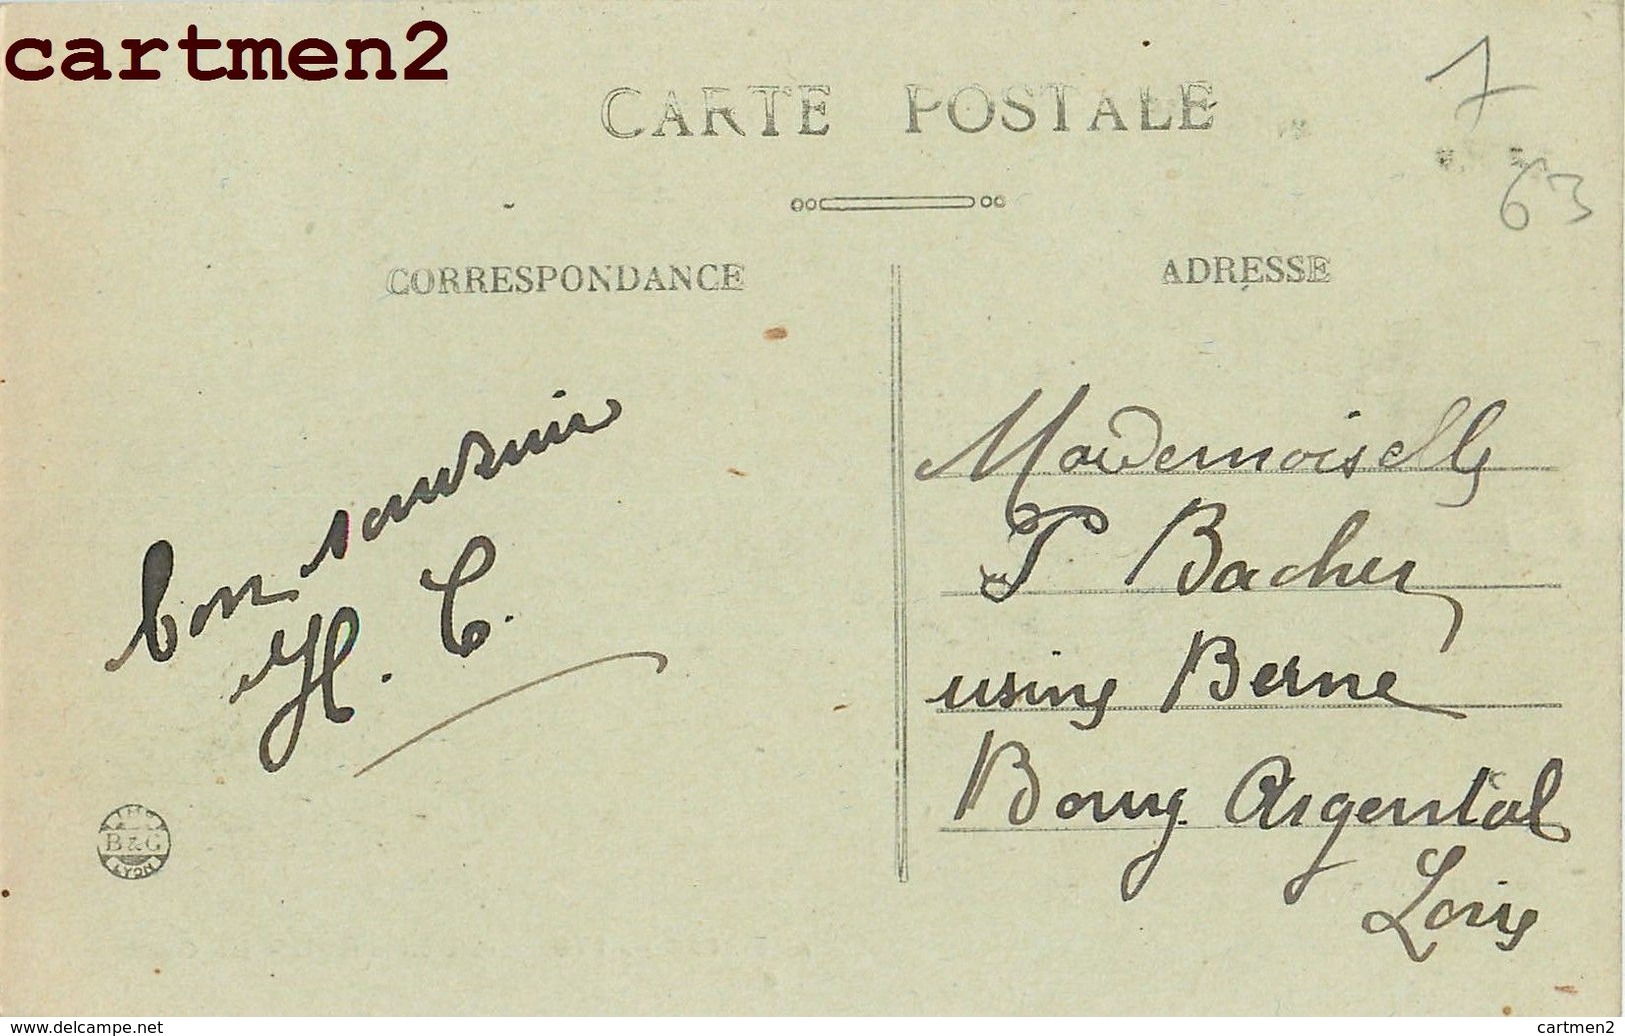 cartmen2
CARTE POSTALE
7
63
CORRESPONDANCE
ADRESSE
bon souvenir
H. C.
Mademoiselle
P Bacher
usine Berne
Bourg Argental
Loire
IMP.
B & G
LYON
www.delcampe.net
cartmen2